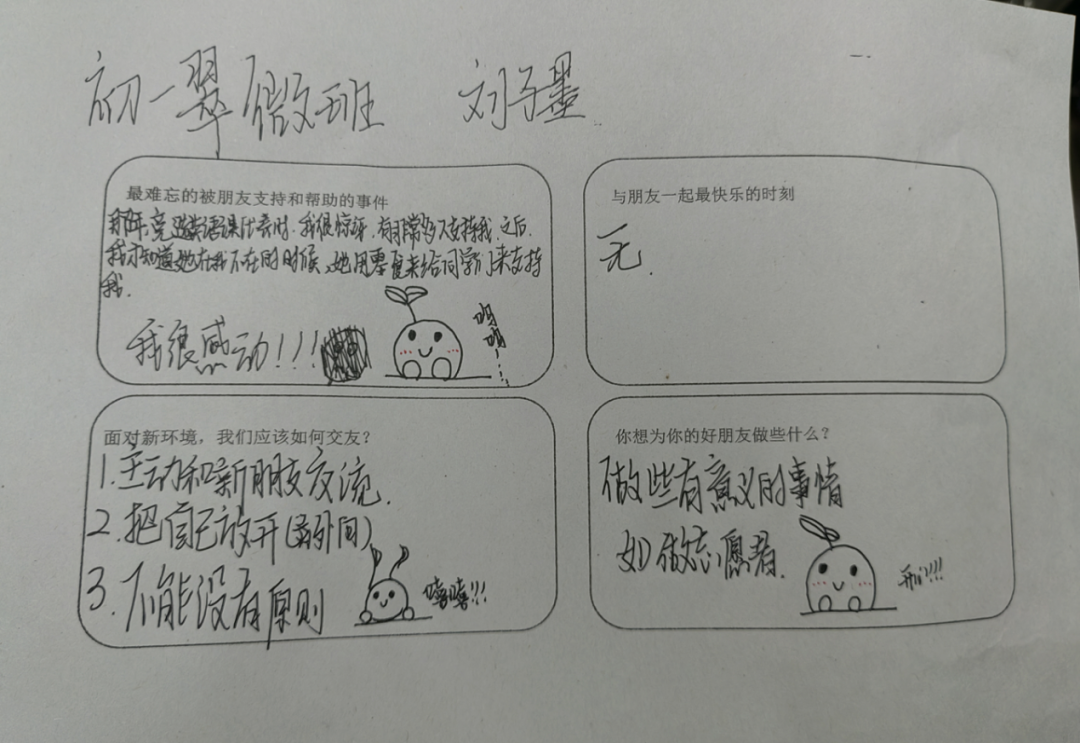 初一翠微班 刘子墨
最难忘的被朋友支持和帮助的事件
那年竞选英语课代表时,我很惊讶,有非常多人支持我,之后
我才知道她在我不在的时候,她用零食来给同学们来支持
我.
我很感动!!!
呜
呜
与朋友一起最快乐的时刻
无.
面对新环境,我们应该如何交友?
1.主动和新朋友交流.
2.把自己放开(最外向)
3.不能没有原则
嘻嘻!!!
你想为你的好朋友做些什么?
做些有意义的事情
如做志愿者.